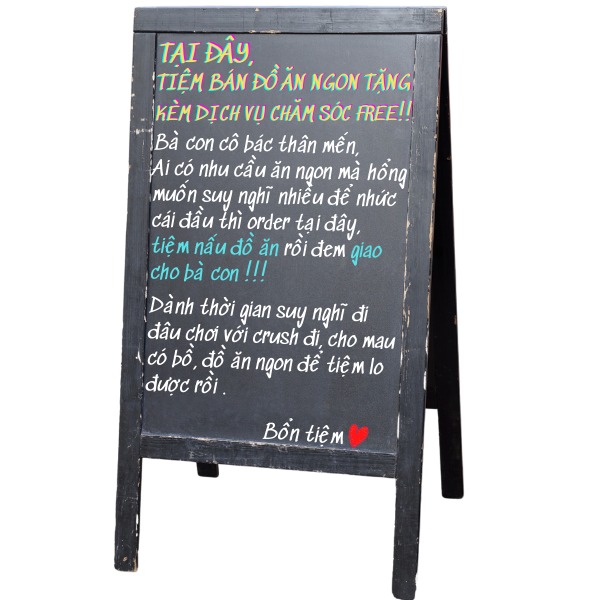 TẠI ĐÂY,
TIỆM BÁN ĐỒ ĂN NGON TẶNG
KÈM DỊCH VỤ CHĂM SÓC FREE!!
Bà con cô bác thân mến,
Ai có nhu cầu ăn ngon mà hổng
muốn suy nghĩ nhiều để nhức
cái đầu thì order tại đây,
tiệm nấu đồ ăn rồi đem giao
cho bà con !!!
Dành thời gian suy nghĩ đi
đâu chơi với crush đi, cho mau
có bồ, đồ ăn ngon để tiệm lo
được rồi .
Bổn tiệm